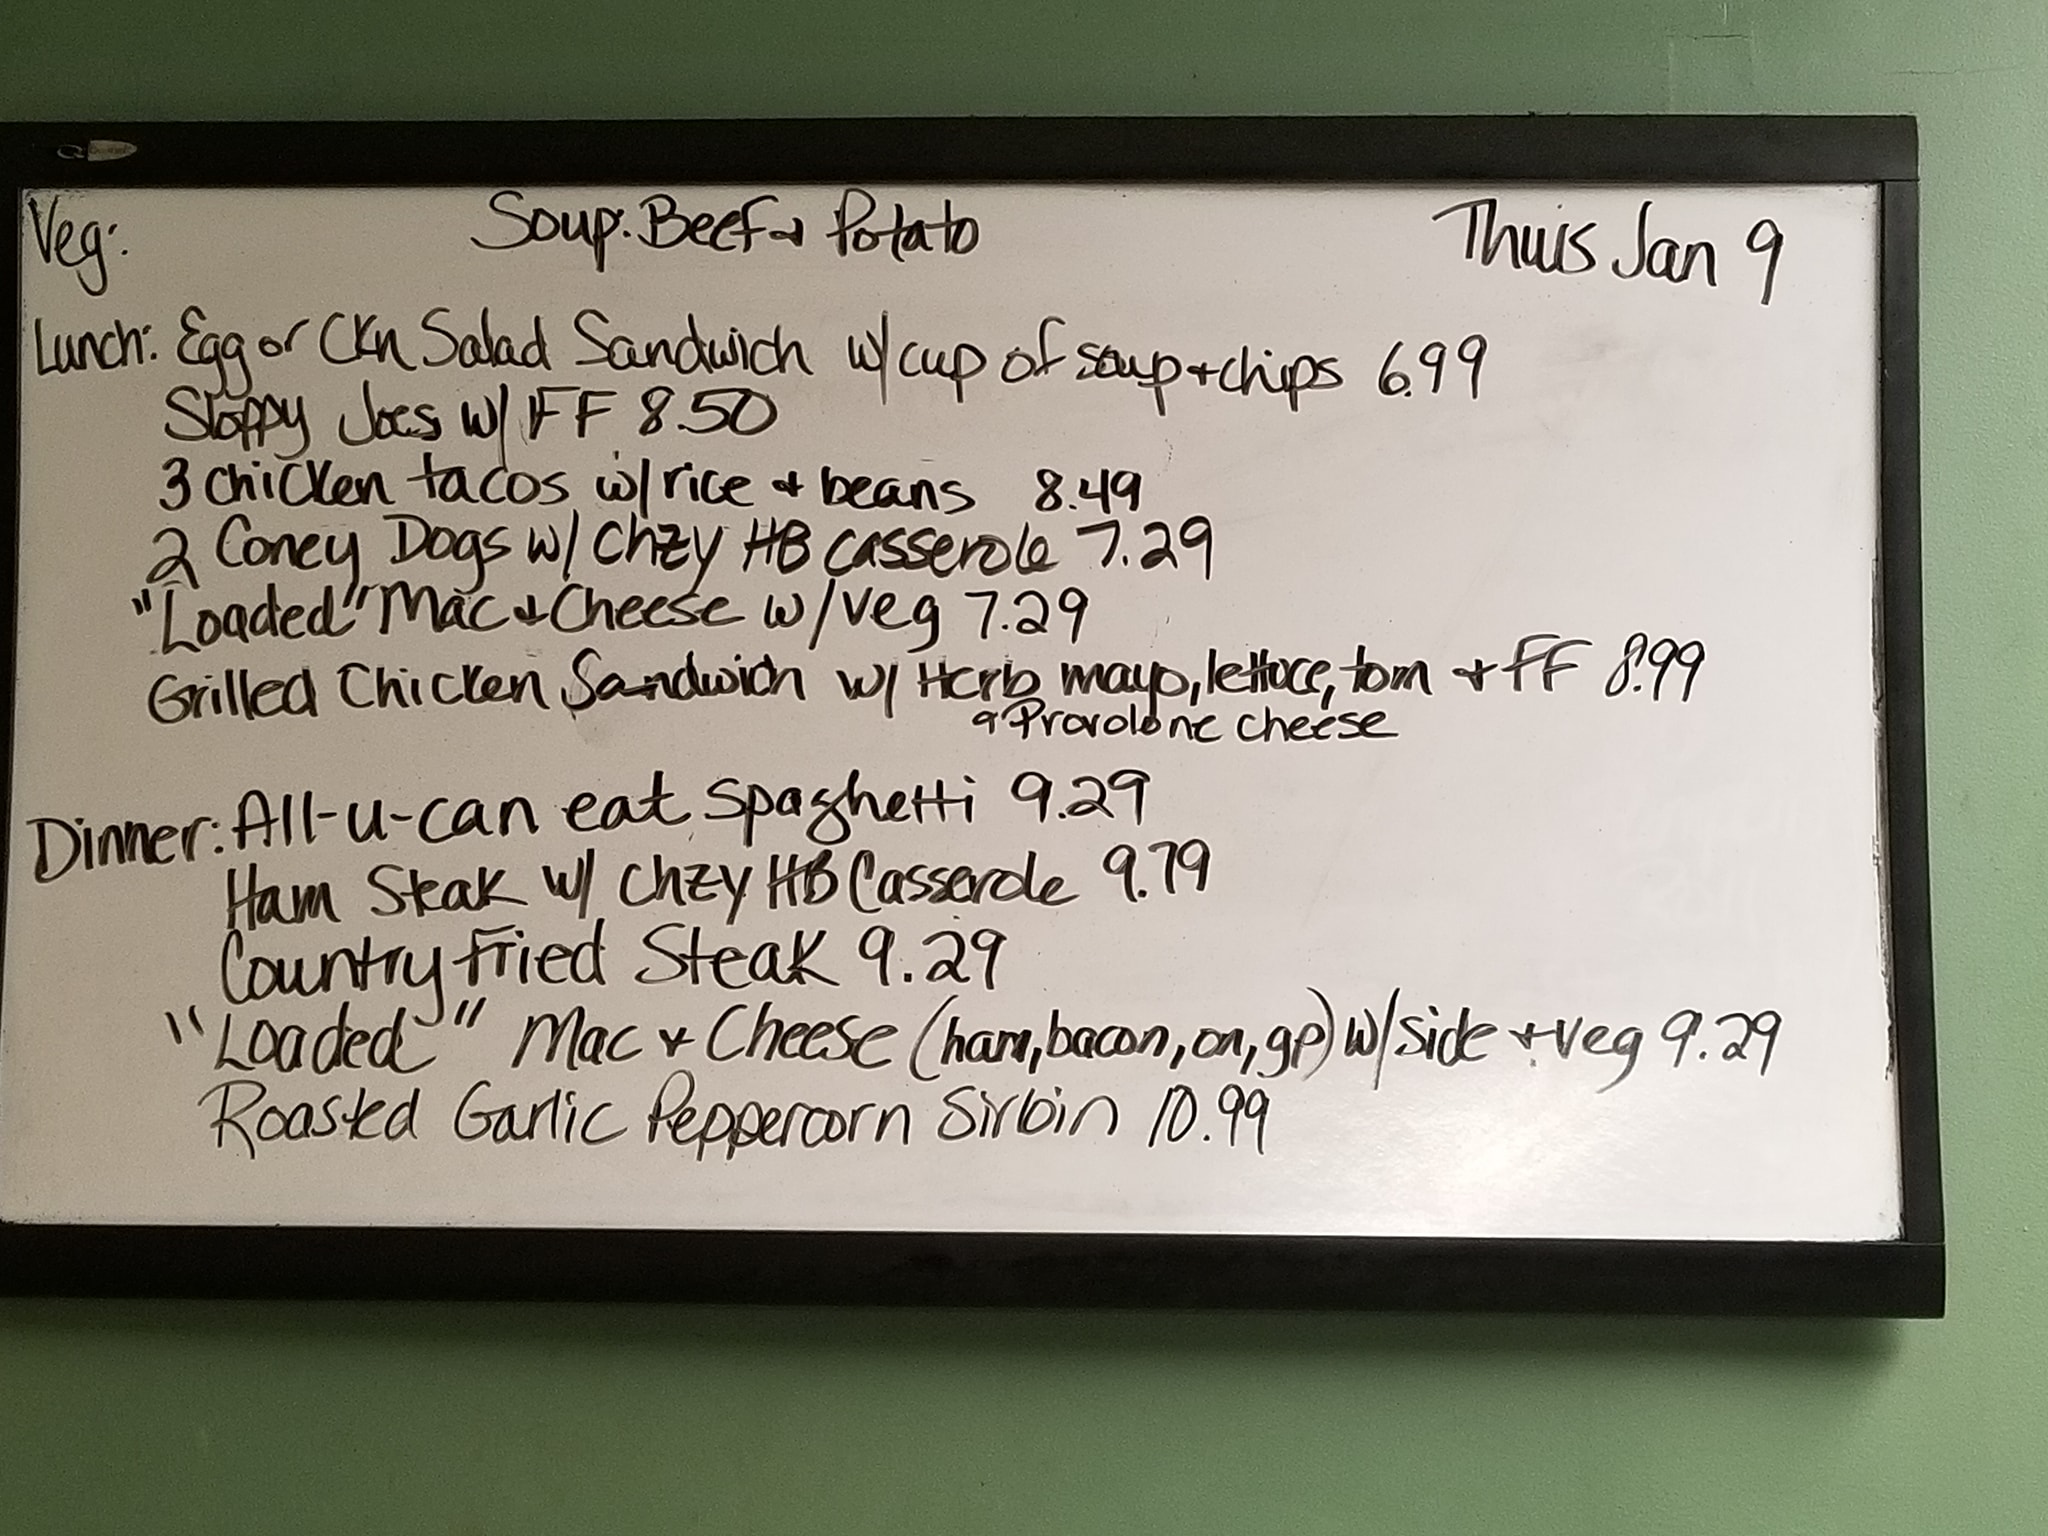 Veg:
Soup: Beef + Potato
Thurs Jan 9
Lunch: Egg or Ckn Salad Sandwich w/ cup of soup + chips 6.99
Sloppy Joes w/ FF 8.50
3 chicken tacos w/ rice + beans 8.49
2 Coney Dogs w/ Chzy HB casserole 7.29
"Loaded" Mac + Cheese w/ veg 7.29
Grilled Chicken Sandwich w/ Herb mayo, lettuce, tom + FF 8.99
+ Provolone cheese
Dinner: All-u-can eat spaghetti 9.29
Ham Steak w/ Chzy HB Casserole 9.79
Country Fried Steak 9.29
"Loaded" Mac + Cheese (ham, bacon, on, gp) w/ side + veg 9.29
Roasted Garlic Peppercorn Sirloin 10.99